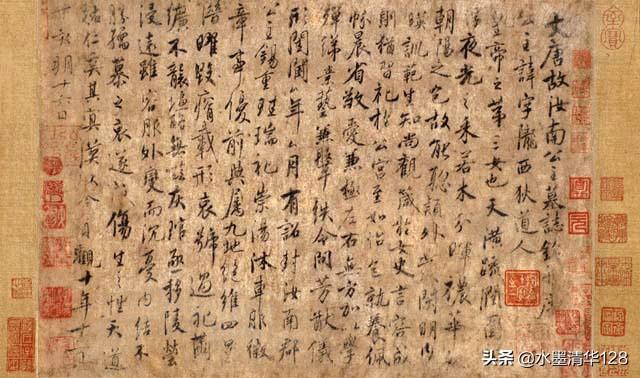 大唐故汝南公主墓誌銘并序
公主諱字隴西狄道人
皇帝之第三女也天潢疏潤圓
夜光之采若木分暉穠華
朝陽之色故能聰穎外發閑明內
暎訓範生知尚觀箴於女史言容成
則猶習礼於公宮至如怡色就養佩
帨晨省敬愛兼極左右無方加以學
殫綈素藝兼鞶紩令問芳猷儀
形閨閫年月有詔封汝南郡
公主錫重珪瑞礼崇湯沐車服徽
章事優前典屬九地絕維四星
潛曜毀瘠載形哀號過礼繭
纊不襲鹽酪無嗞灰琯亟移陵塋
浸遠雖容服外變而沉憂內結不
勝孺慕之哀遂成傷生之性天道
祐仁奚其冥漠以今貞觀十年十一
朔十六日
头条 @水墨清华128